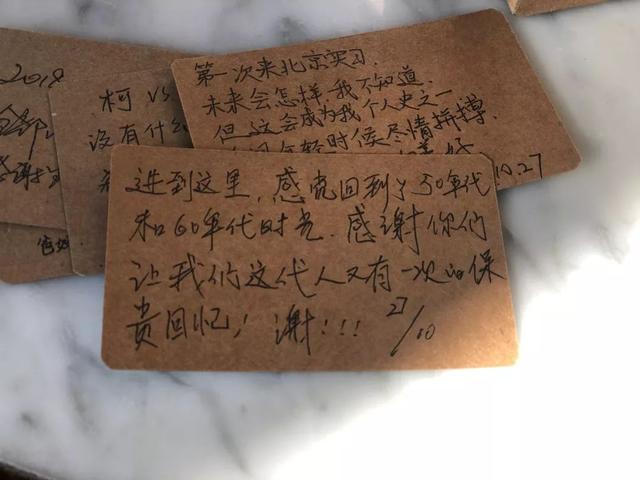 2018
柯 VS
没有什么
第一次来北京实习.
未来会怎样我不知道.
但这会成为我个人史之一
年轻时候尽情拼搏.
10.27
进到这里,感觉回到了50年代
和60年代时光.感谢你们
让我们这代人又有一次的保
贵回忆!谢!!! 27/10